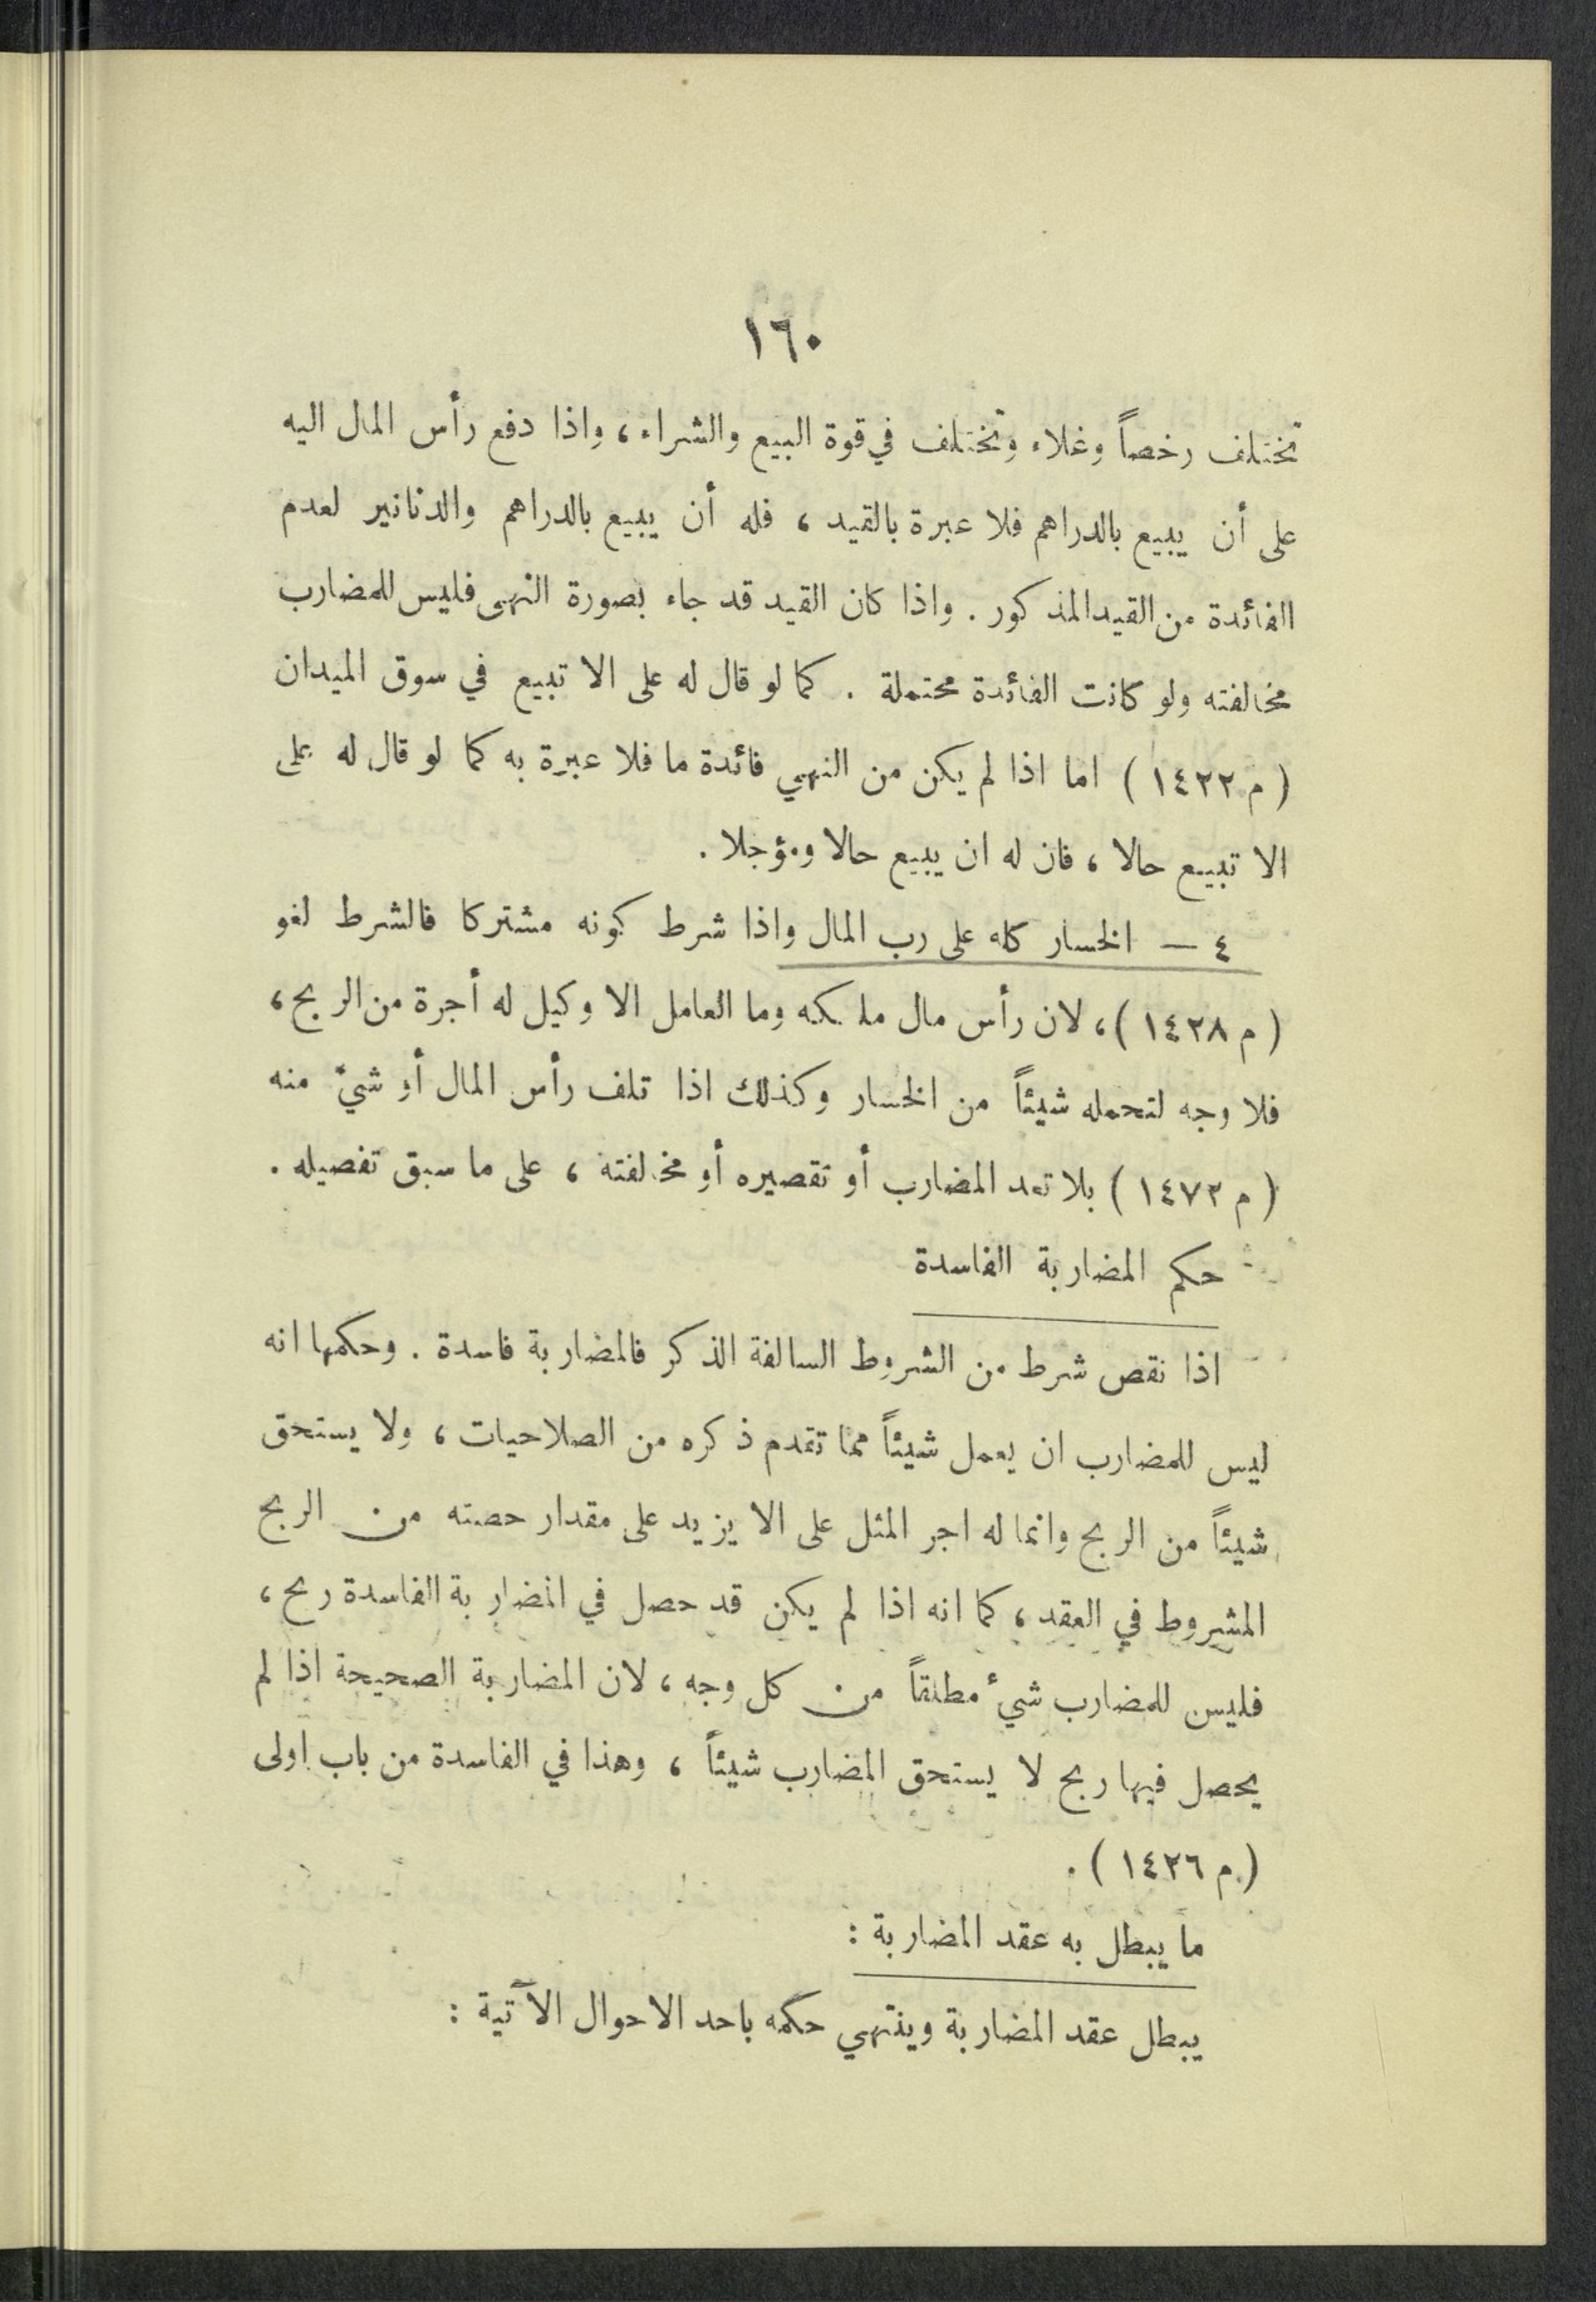 ١٦٠
تختلف رخصاً وغلاء وتختلف في قوة البيع والشراء، واذا دفع رأس المال اليه
على أن يبيع بالدراهم فلا عبرة بالقيد ، فله أن يبيع بالدراهم والدنانير لعدم
الفائدة من القيد المذكور . واذا كان القيد قد جاء بصورة النهى فليس للمضارب
مخالفته ولو كانت الفائدة محتملة . كما لو قال له على الا تبيع في سوق الميدان
( م ١٤٢٢ ) اما اذا لم يكن من النهي فائدة ما فلا عبرة به كما لو قال له على
الا تبيع حالا ، فان له ان يبيع حالا ومؤجلا .
٤ – الخسار كله على رب المال واذا شرط كونه مشتركا فالشرط لغو
( م ١٤٢٨ )، لان رأس مال ملكه وما العامل الا وكيل له أجرة من الربح ،
فلا وجه لتحمله شيئاً من الخسار وكذلك اذا تلف رأس المال أو شيء منه
( م ١٤٧٢ ) بلا تعد المضارب أو تقصيره أو مخالفته ، على ما سبق تفصيله .
حكم المضاربة الفاسدة
اذا نقص شرط من الشروط السالفة الذكر فالمضاربة فاسدة . وحكمها انه
ليس للمضارب ان يعمل شيئاً مما تقدم ذكره من الصلاحيات ، ولا يستحق
شيئاً من الربح وانما له اجر المثل على الا يزيد على مقدار حصته من الربح
المشروط في العقد ، كما انه اذا لم يكن قد حصل في المضاربة الفاسدة ربح ،
فليس للمضارب شيء مطلقاً من كل وجه ، لان المضاربة الصحيحة اذا لم
يحصل فيها ربح لا يستحق المضارب شيئاً ، وهذا في الفاسدة من باب اولى
( م ١٤٢٦ ) .
ما يبطل به عقد المضاربة :
يبطل عقد المضاربة وينتهي حكمه باحد الاحوال الآتية :